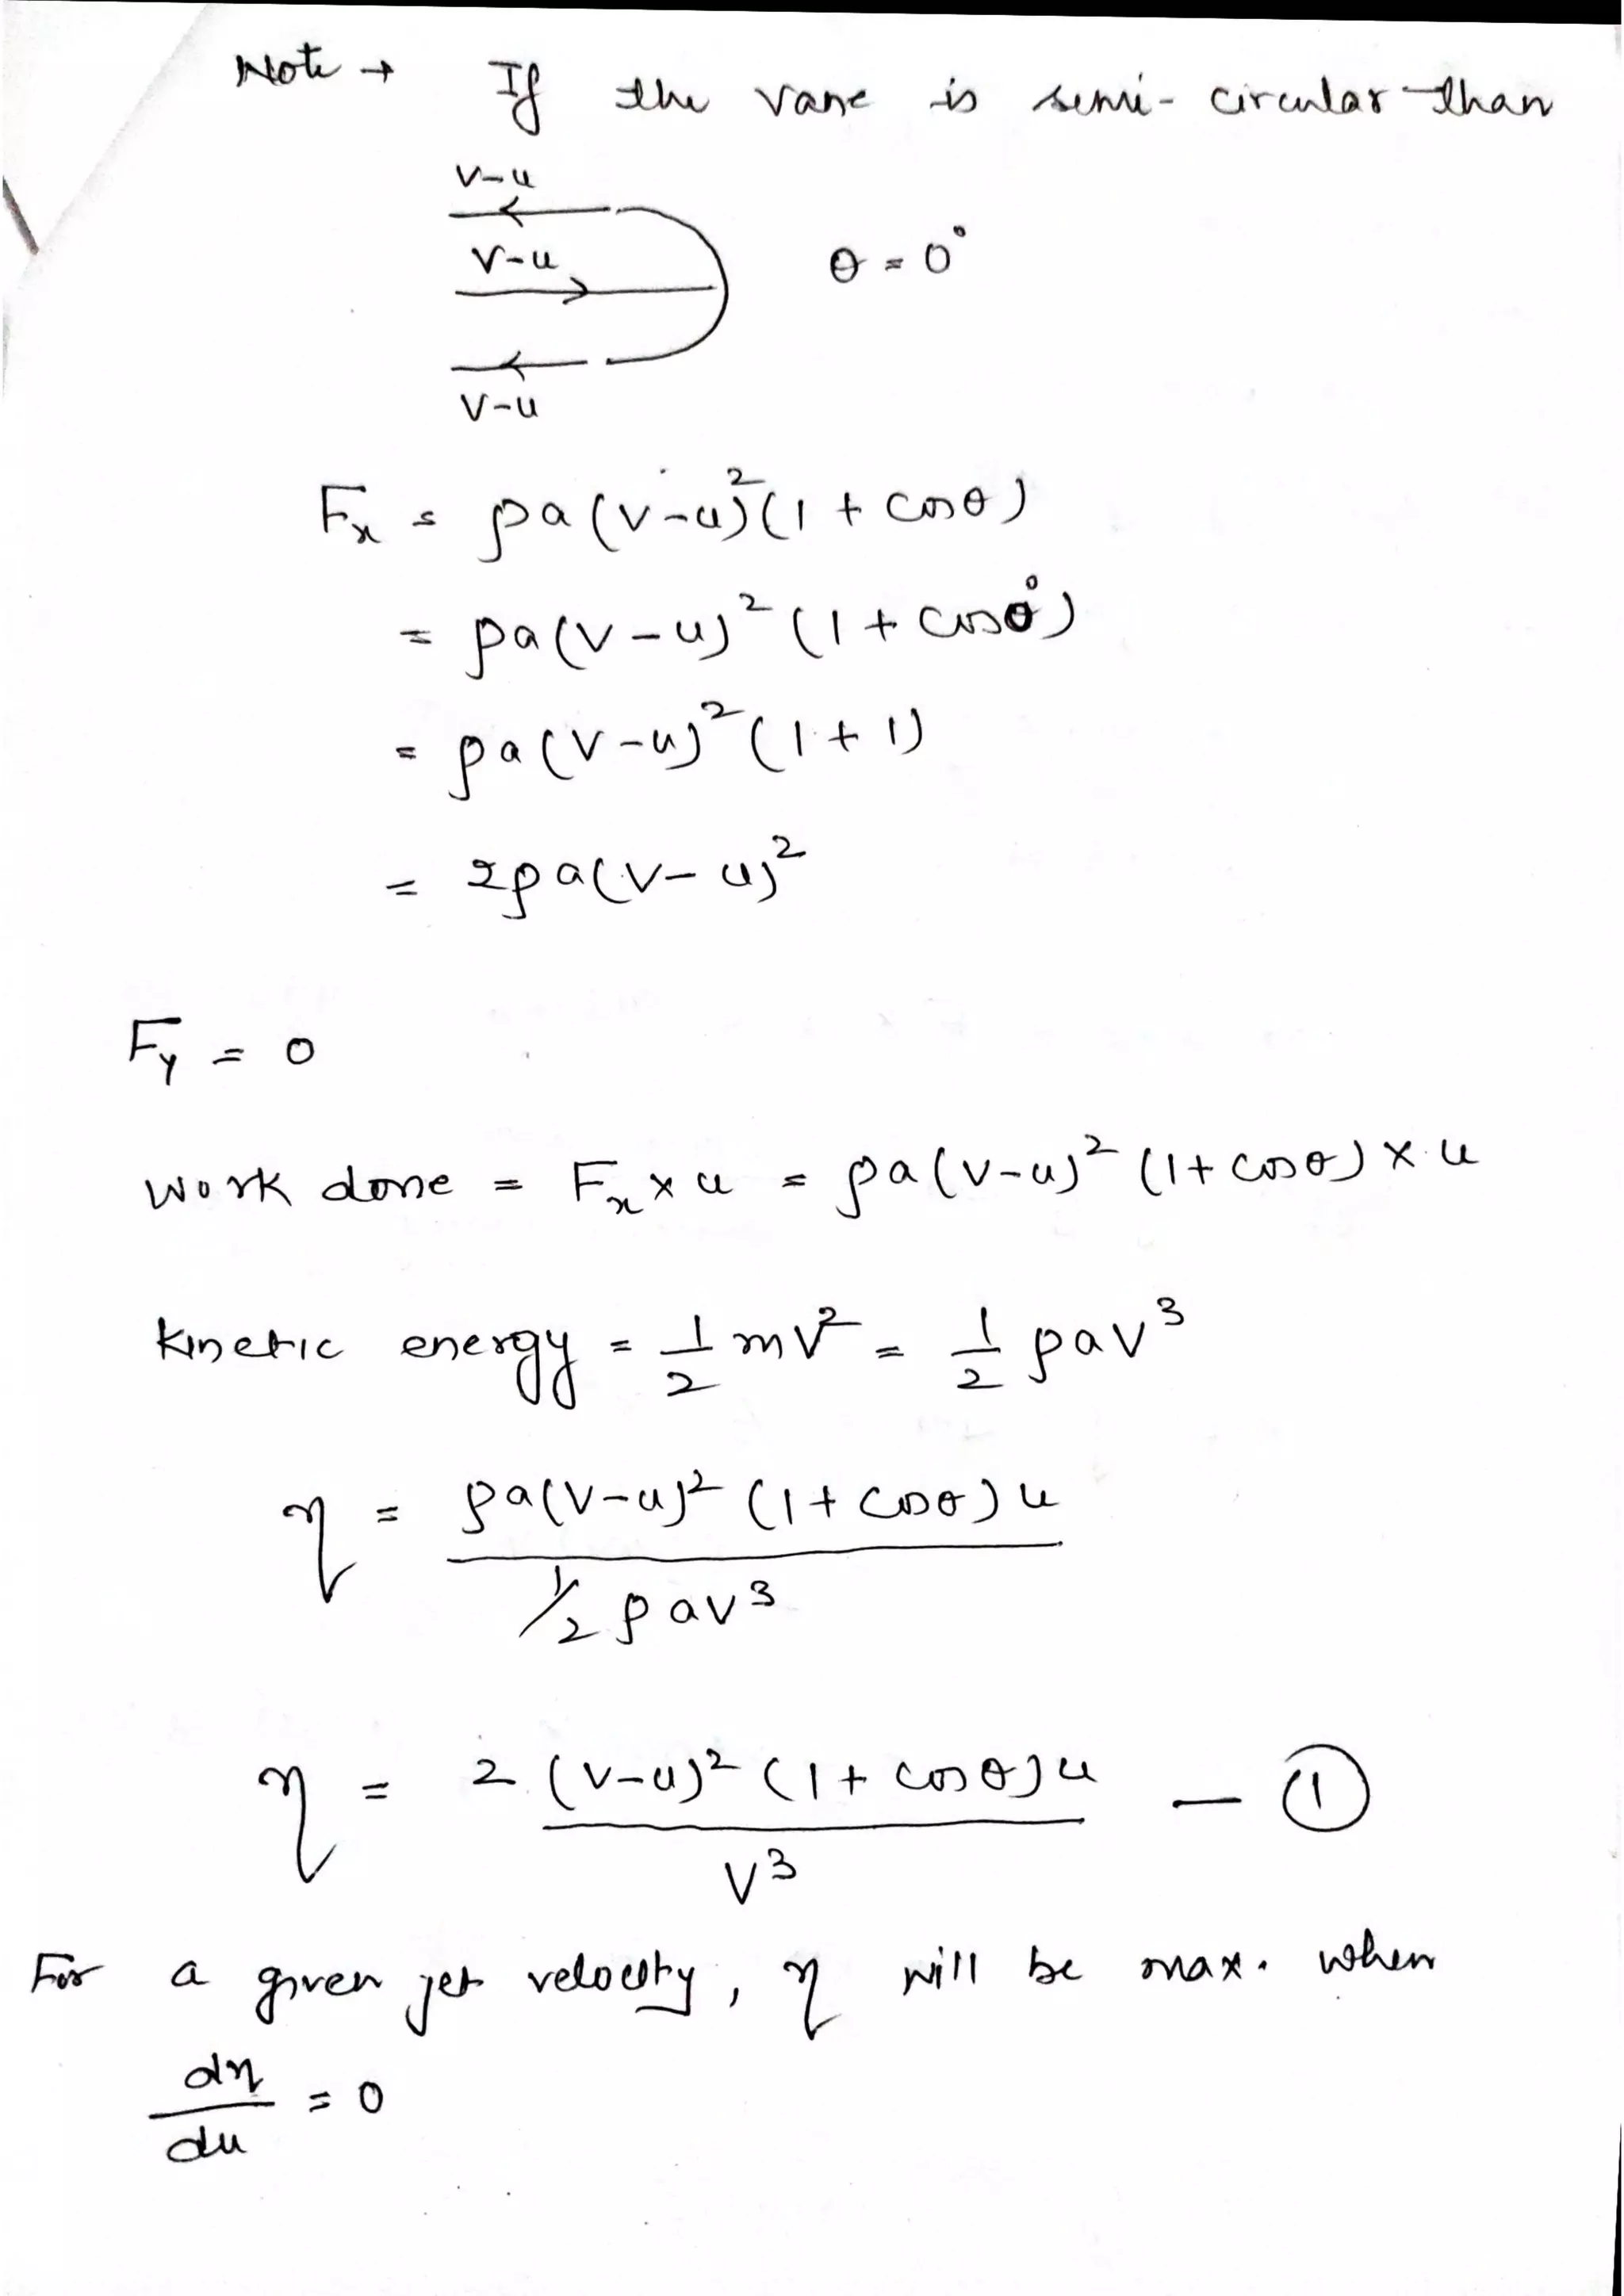 Note → If the vane is semi-circular than
V-u
V-u
θ = 0°
V-u
Fx = ρa(V-u)²(1 + cosθ)
= ρa(V-u)²(1 + cos0°)
= ρa(V-u)²(1+1)
= 2ρa(V-u)²
Fy = 0
Work done = Fx × u = ρa(V-u)² (1+cosθ) × u
Kinetic energy = 1/2 mV² = 1/2 ρav³
η = ρa(V-u)² (1+cosθ)u / 1/2 ρav³
η = 2 (V-u)² (1+cosθ)u / V³ — ①
For a given jet velocity, η will be max. when
dη/du = 0